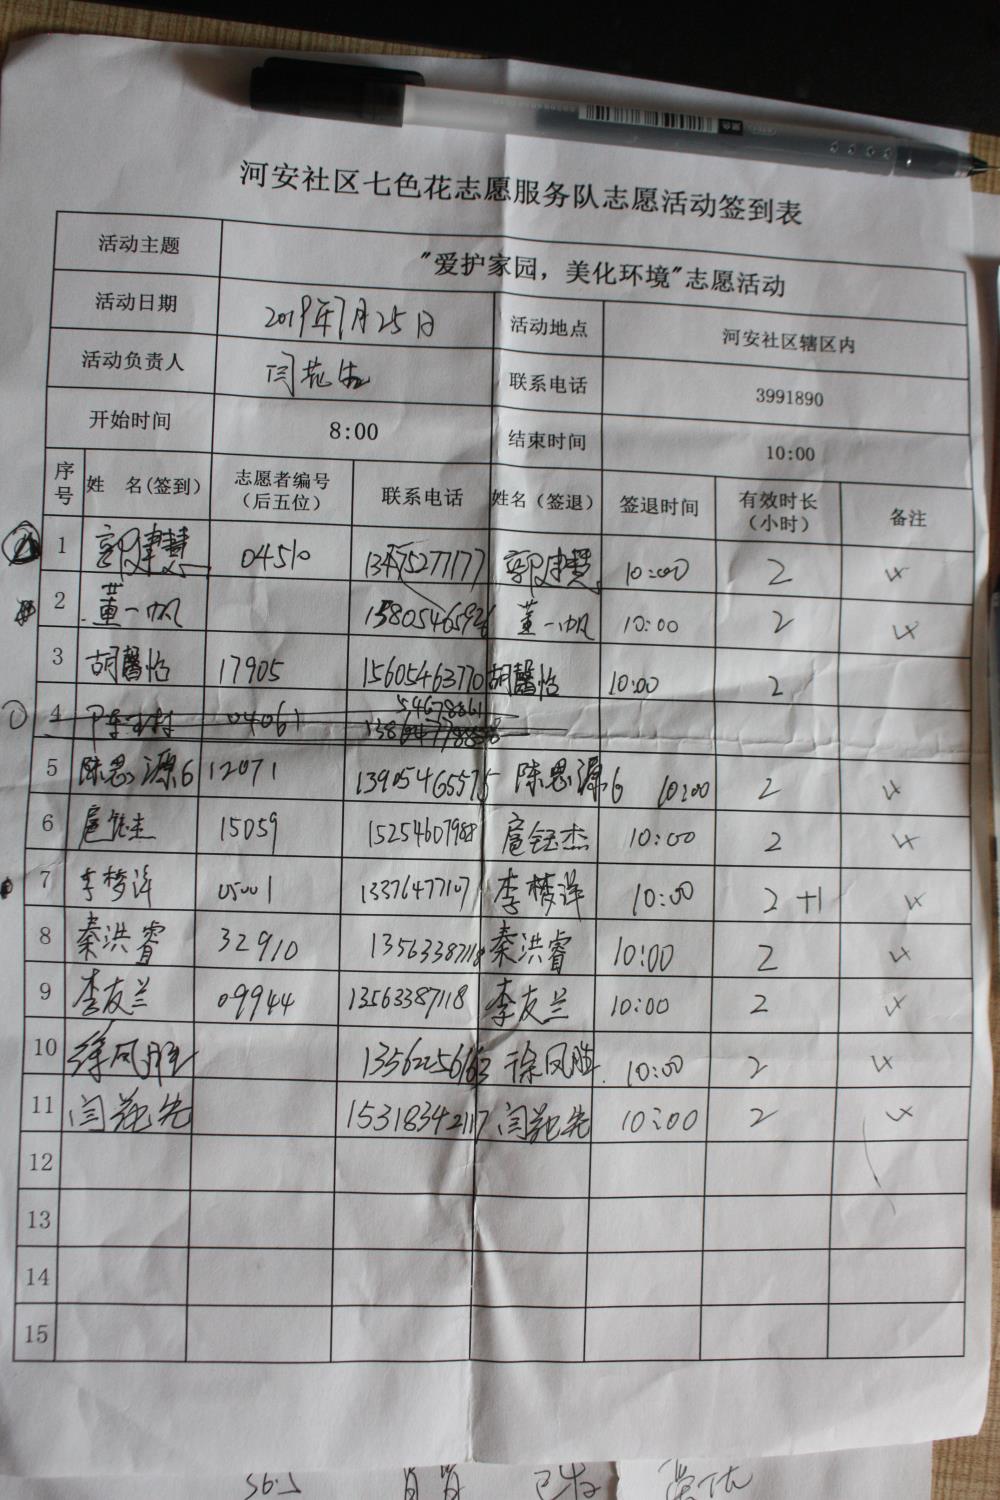 河安社区七色花志愿服务队志愿活动签到表
活动主题 "爱护家园，美化环境"志愿活动
活动日期 2019年7月25日 活动地点 河安社区辖区内
活动负责人 闫 联系电话 3991890
开始时间 8:00 结束时间 10:00
序号 姓 名(签到) 志愿者编号（后五位） 联系电话 姓名（签退） 签退时间 有效时长（小时） 备注
1 郭建慧 04510 13475277177 郭建慧 10:00 2
2 董一帆 1380546592 董一帆 10:00 2
3 胡馨怡 17905 15605463770 胡馨怡 10:00 2
4 04061
5 陈思源6 12071 13905465575 陈思源6 10:00 2
6 扈钰杰 15059 15254607988 扈钰杰 10:00 2
7 李梦洋 05001 13376477107 李梦洋 10:00 2 +1
8 秦洪睿 32910 13563387118 秦洪睿 10:00 2
9 李友兰 09944 13563387118 李友兰 10:00 2
10 徐凤胜 13562256163 徐凤胜 10:00 2
11 闫 先 15318342117 闫 先 10:00 2
12
13
14
15